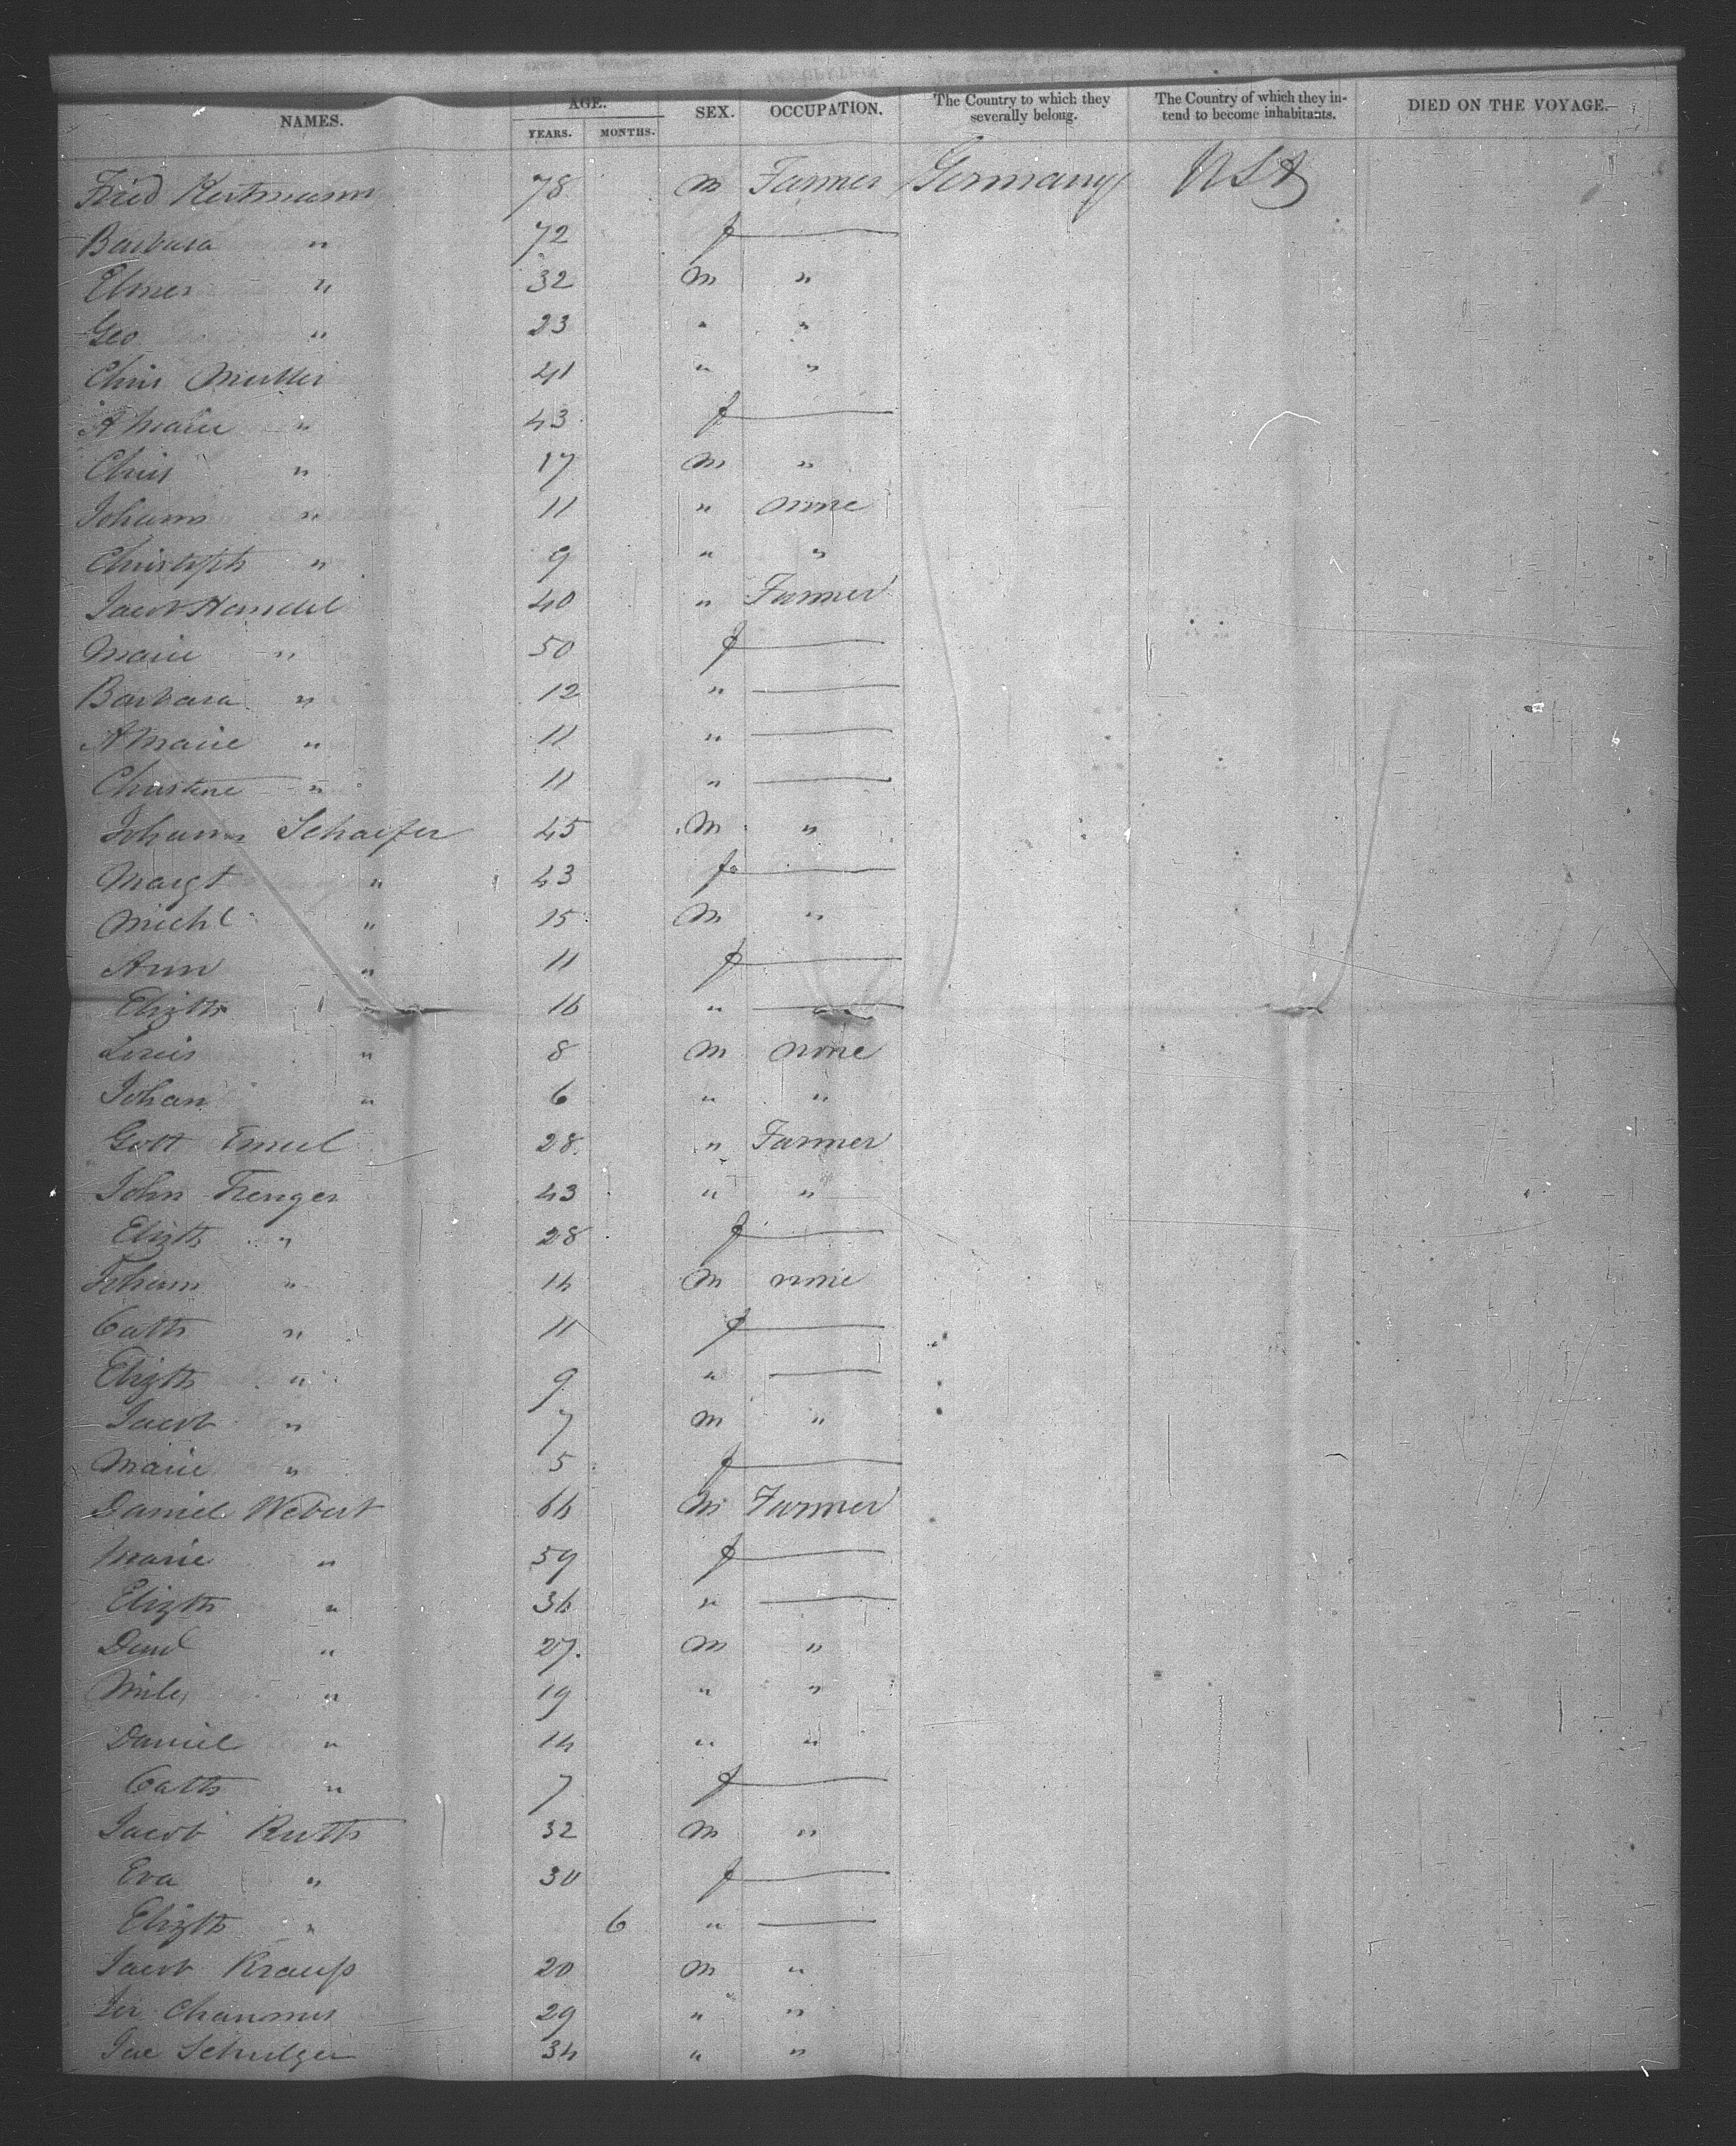 NAMES. AGE. YEARS. MONTHS. SEX. OCCUPATION. The Country to which they severally belong. The Country of which they intend to become inhabitants. DIED ON THE VOYAGE.
Fried 78 m Farmer Germany USA
Barbara " 72 f —
Elmer " 32 m "
Geo " 23 " "
Chris Muller 41 " "
A Marie " 43 f —
Chris " 17 m "
Johann " 11 " none
Christoph " 9 " "
Jacob Handel 40 " Farmer
Marie " 50 f —
Barbara " 12 " —
A Marie " 11 " —
Christine " 11 " —
Johann Schaefer 45 m "
Margt " 43 f —
Michl " 15 m "
Ann " 11 f —
Elizth " 16 " —
Louis " 8 m none
Johan " 6 " "
Gott 28 " Farmer
John Fenger 43 " "
Elizth " 28 f —
Johann " 14 m none
Cath " 11 f —
Elizth " 9 " —
Jacob " 7 m "
Marie " 5 f —
Daniel Webert 64 m Farmer
Marie " 59 f —
Elizth " 34 " —
" 27 m "
" 19 " "
Daniel " 14 " "
Cath " 7 f —
Jacob Ruth 32 m "
Eva " 30 f —
Elizth " 6 " —
Jacob Krauß 20 m "
29 " "
34 " "